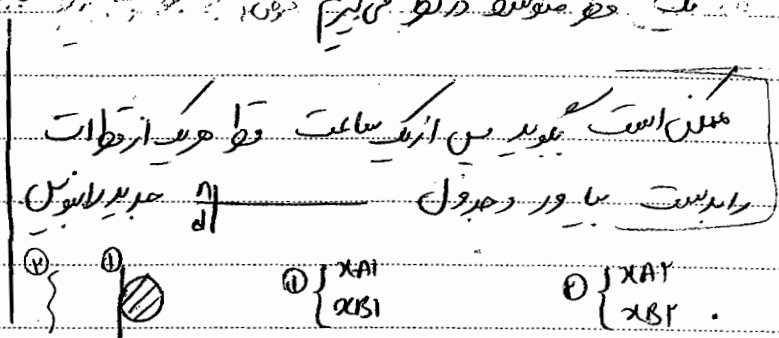 در نظر می گیریم
ممکن است بگوید پس از یک ساعت قطر هر یک از قطرات
را بدست بیاور و جدول n d جدید را بنویس
② ① ① { xA1 xB1 ② { xA2 xB2 .